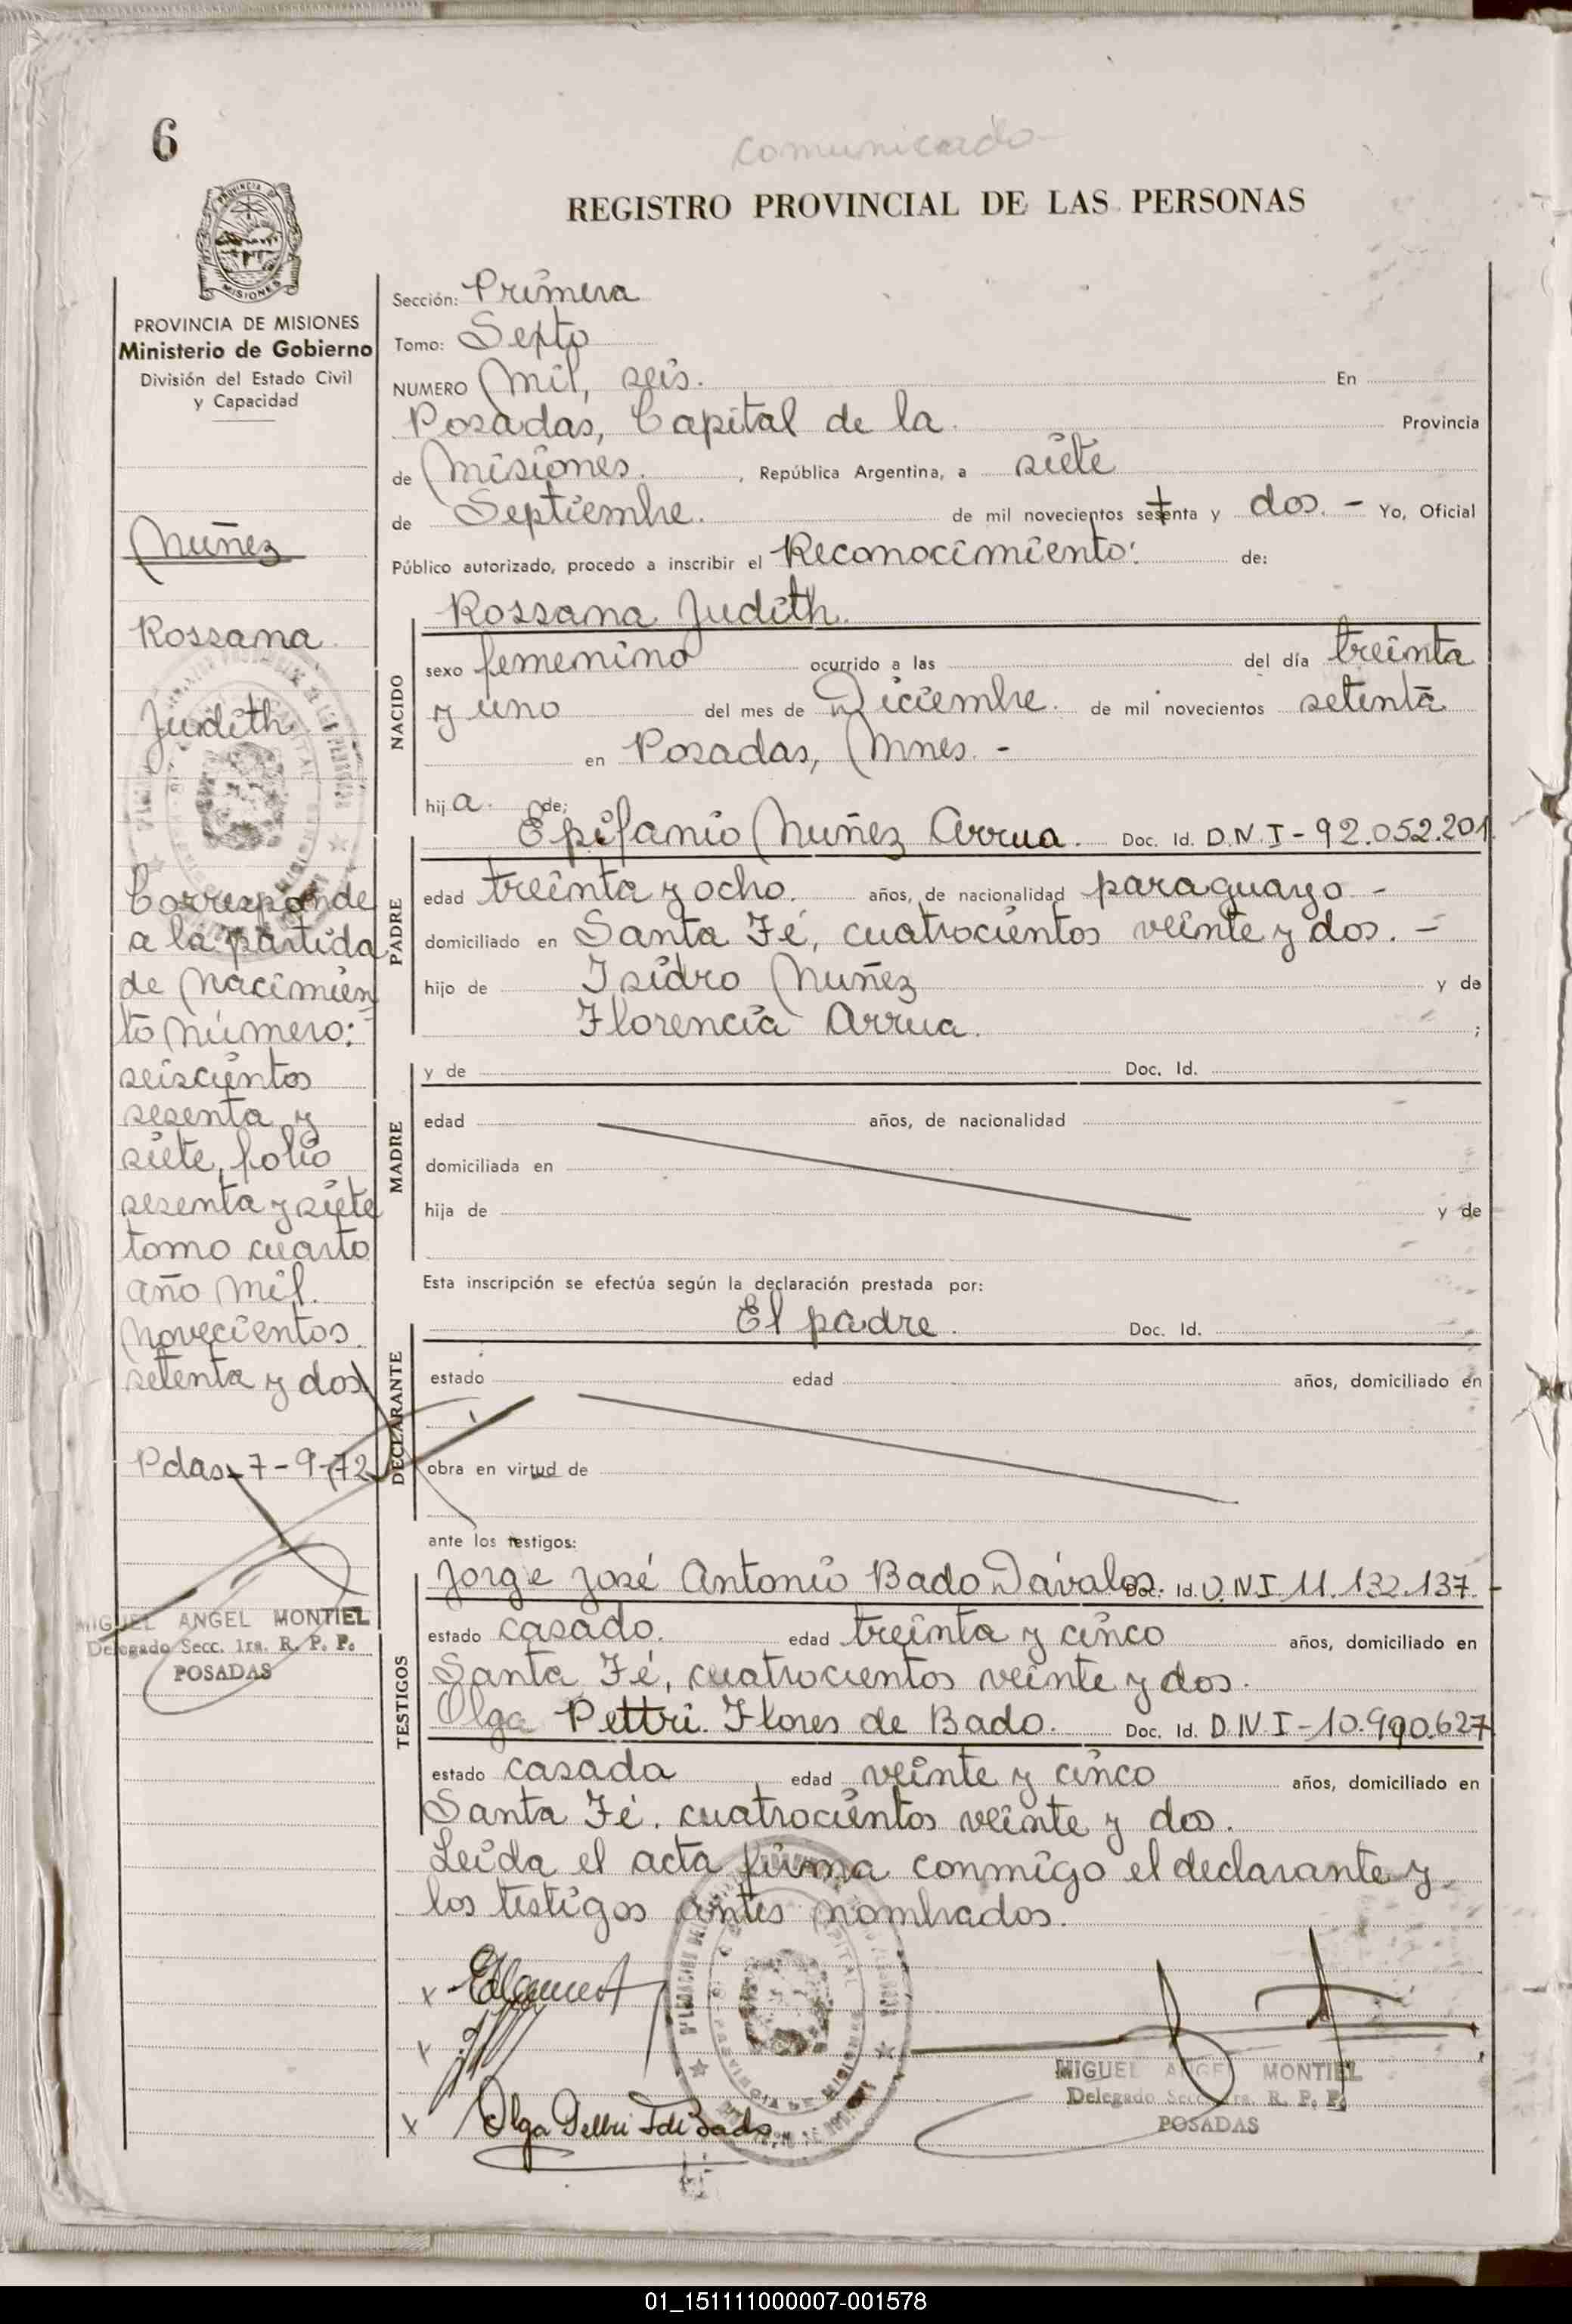 6
comunicado
REGISTRO PROVINCIAL DE LAS PERSONAS
MISIONES
PROVINCIA DE MISIONES
Ministerio de Gobierno
División del Estado Civil
y Capacidad
Nuñez
Rossana
Judith
Corresponde
a la partida
de Nacimien
to Número:
seiscientos
sesenta y
siete, folio
sesenta y siete
tomo cuarto
año mil
novecientos
setenta y dos
Pdas, 7-9-72
MIGUEL ANGEL MONTIEL
Delegado Secc. 1ra. R. P. P.
POSADAS
Sección: Primera
Tomo: Septo
NUMERO Mil, seis. En
Posadas, Capital de la Provincia
de Misiones. , República Argentina, a siete
de Septiembre. de mil novecientos setenta y dos. - Yo, Oficial
Público autorizado, procedo a inscribir el Reconocimiento: de:
Rossana Judith.
NACIDO
sexo femenino ocurrido a las del día treinta
y uno del mes de Diciembre. de mil novecientos setenta
en Posadas, Mnes. -
hija. de:
PADRE
Epifanio Nuñez Arrua. Doc. Id. D.N.I-92.052.201.
edad treinta y ocho. años, de nacionalidad paraguayo -
domiciliado en Santa Fé, cuatrocientos veinte y dos. -
hijo de Isidro Nuñez y de
Florencia Arrua. ;
MADRE
y de Doc. Id.
edad años, de nacionalidad
domiciliada en
hija de y de
Esta inscripción se efectúa según la declaración prestada por:
DECLARANTE
El padre. Doc. Id.
estado edad años, domiciliado en
obra en virtud de
ante los testigos:
TESTIGOS
Jorge José Antonio Bado Dávalos. Doc. Id. D.N.I 11.132.137 -
estado casado. edad treinta y cinco años, domiciliado en
Santa Fé, cuatrocientos veinte y dos.
Olga Pettri Flores de Bado. Doc. Id. D.N.I-10.990.627
estado casada edad veinte y cinco años, domiciliado en
Santa Fé. cuatrocientos veinte y dos.
Leida el acta firma conmigo el declarante y
los testigos antes nombrados.
Olga Pettri F de Bado
MIGUEL ANGEL MONTIEL
Delegado Secc. 1ra. R. P. P.
POSADAS
01_151111000007-001578